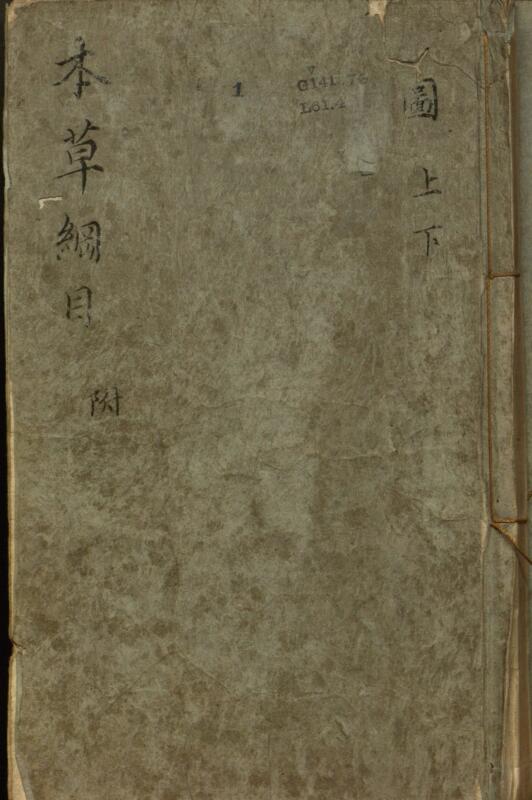 圖 上 下
本草綱目 附
1
G141.76
L61.2